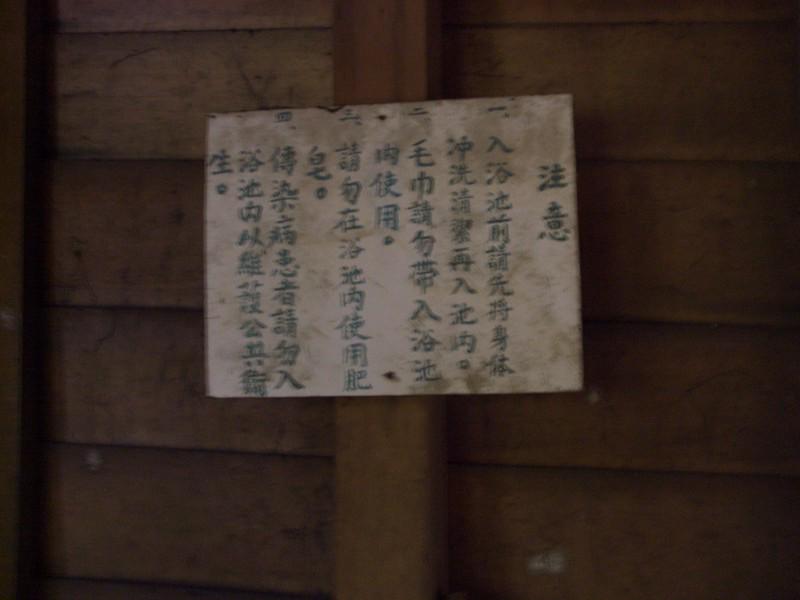 注意
一、入浴池前請先將身体
沖洗清潔再入池內。
二、毛巾請勿帶入浴池
內使用。
三、請勿在浴池內使用肥
皂。
四、傳染病患者請勿入
浴池內以維護公共衛
生。